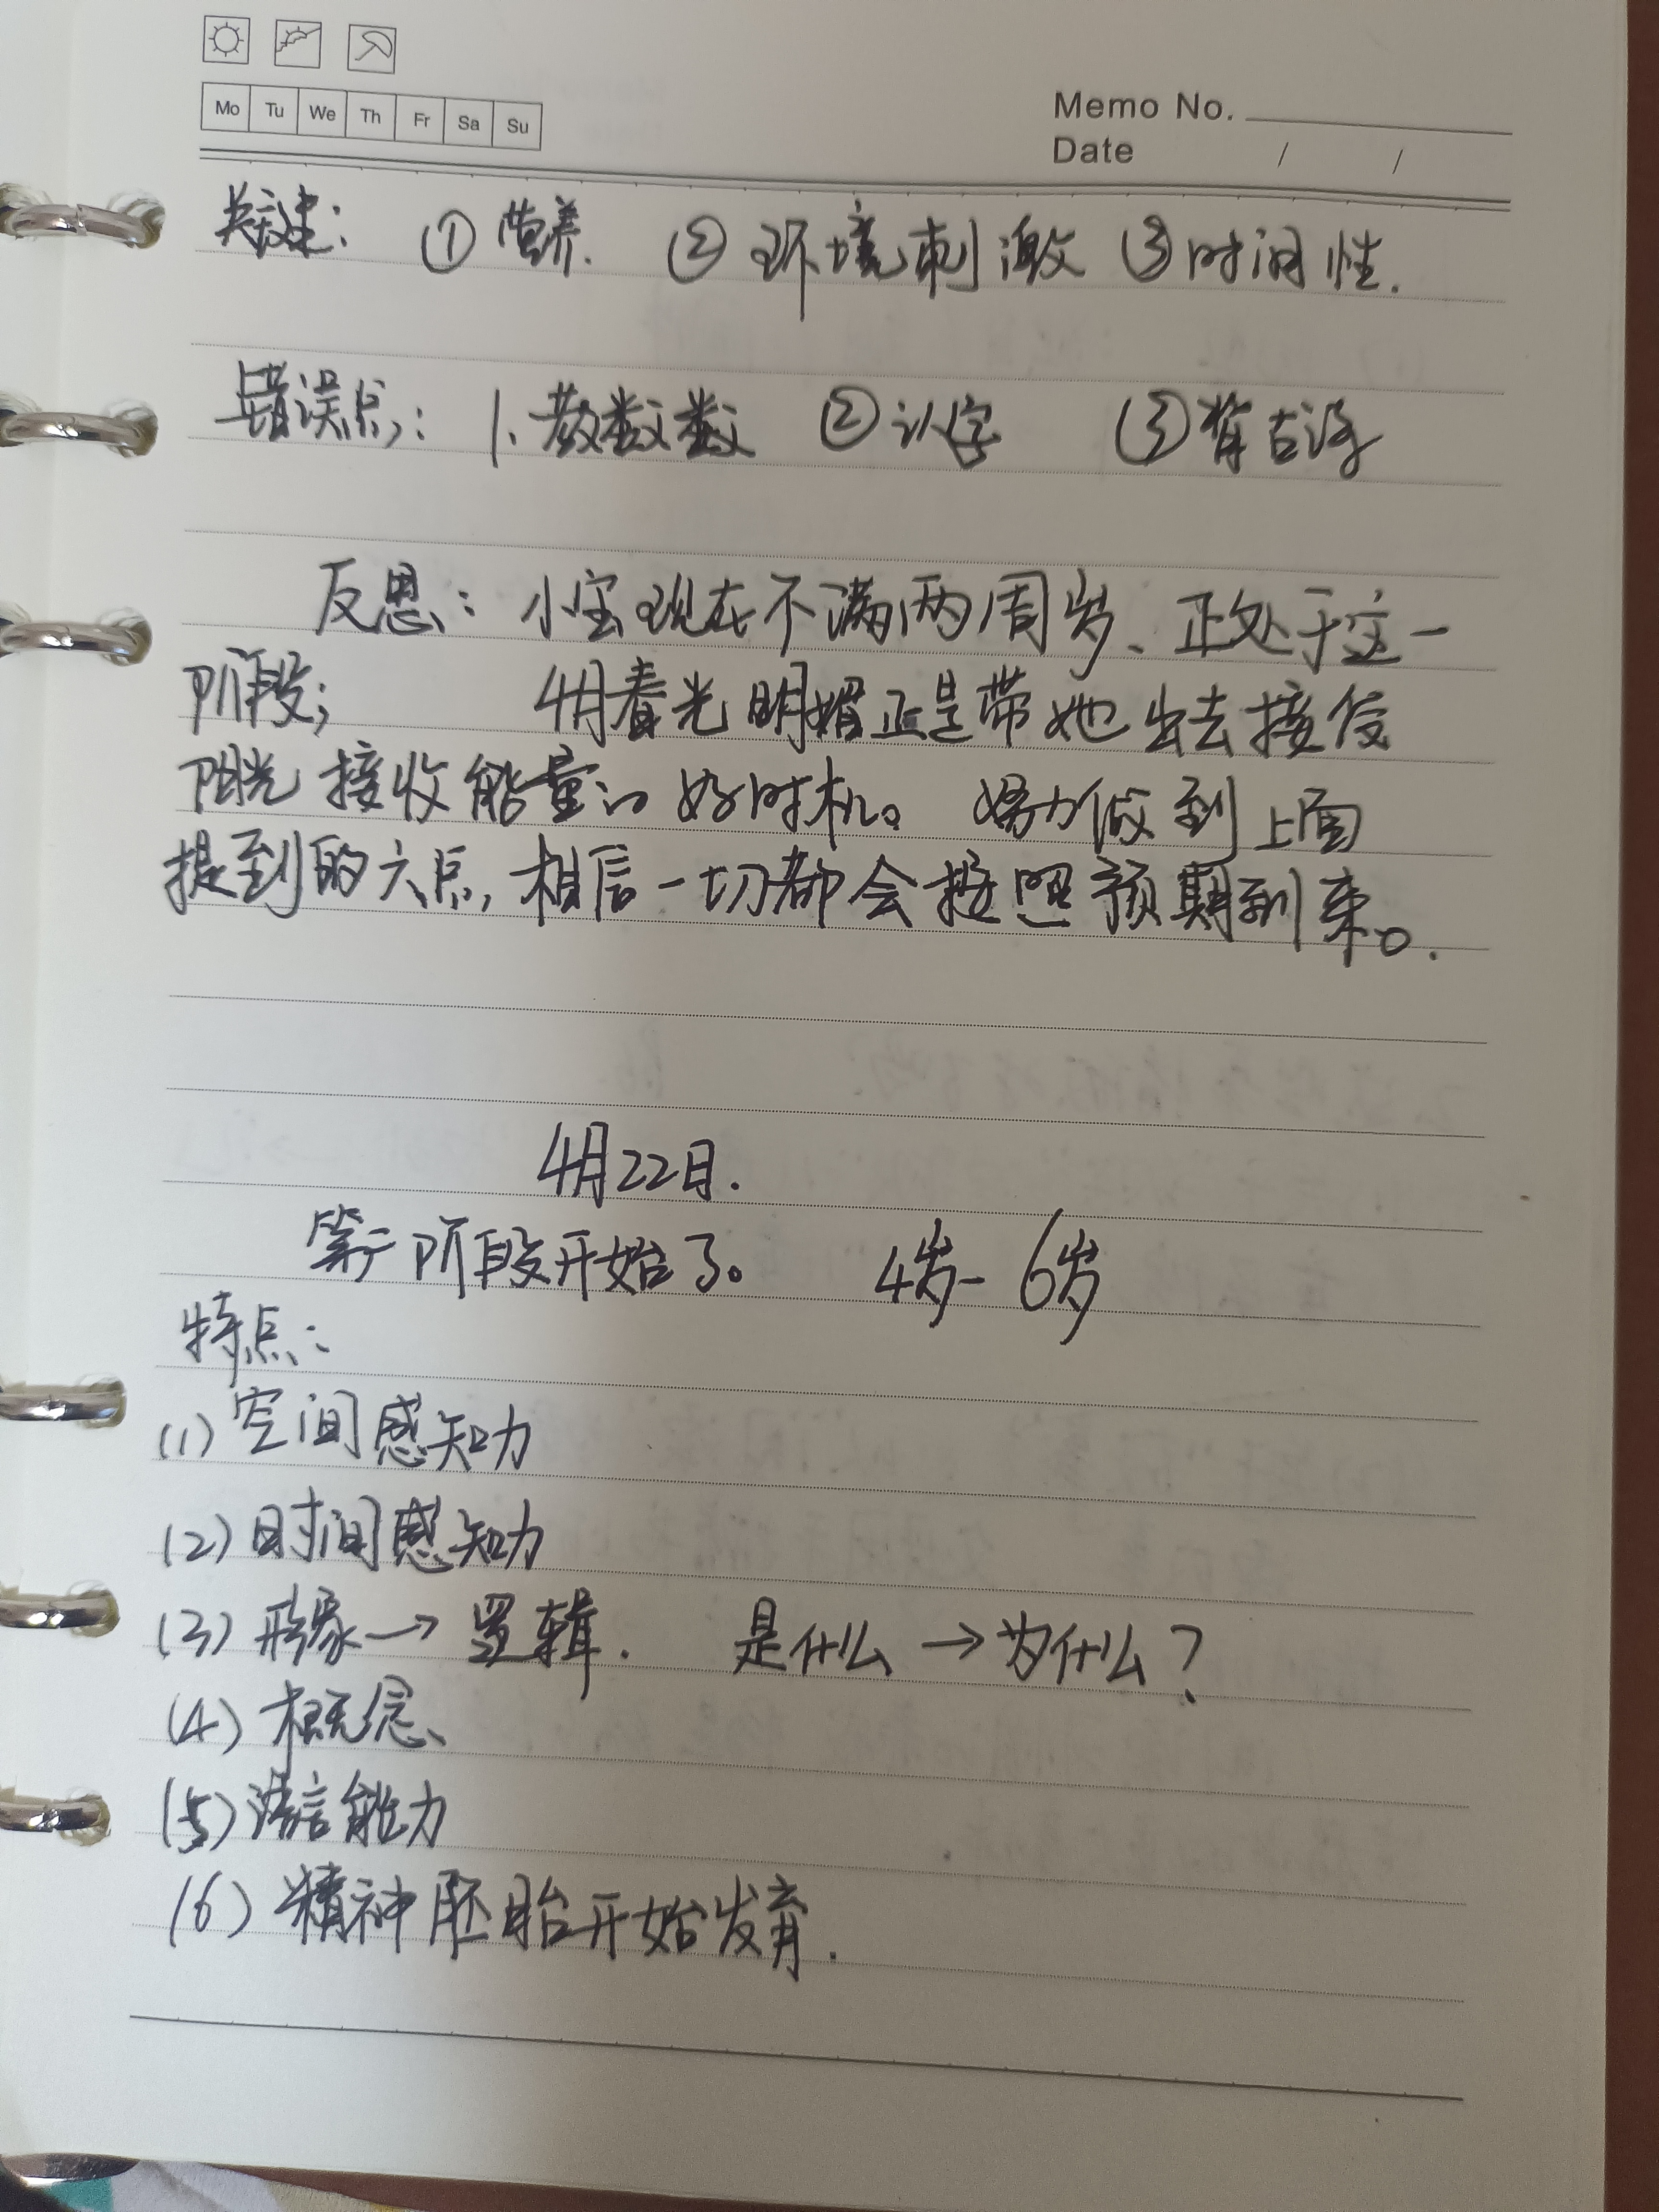 Mo Tu We Th Fr Sa Su
Memo No.
Date / /
关键: ①营养. ②环境刺激 ③时间性.
错误点: 1.教数数 ②认字 ③背古诗
反思: 小宝现在不满两周岁、正处于这一
阶段; 4月春光明媚正是带她出去接受
阳光接收能量的好时机。努力做到上面
提到的六点,相信一切都会按照预期到来。.
4月22日.
第二阶段开始了。 4岁-6岁
特点:
(1)空间感知力
(2)时间感知力
(3)形象→逻辑. 是什么→为什么?
(4)概念、
(5)语言能力
(6)精神胚胎开始发育.